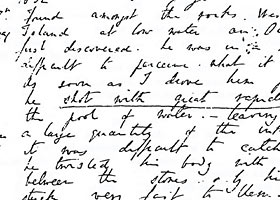 found amongst the rocks. West
Island at low water on Oc
first discovered he was in
difficult to perceive what it
as soon as I drove him
he shot with great rapid
the pool of water. — leaving
a large quantity of the in
it was difficult to catch
he twisted his body with
between the stones & by his
stuck very fast to them